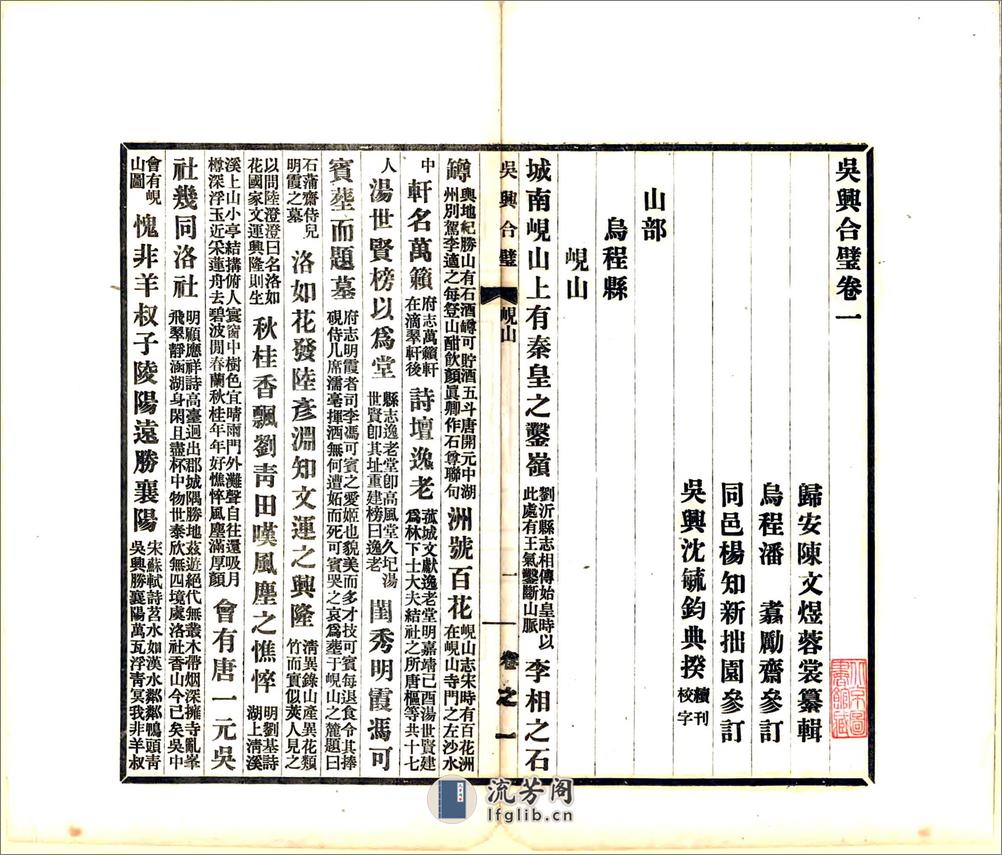 吳興合璧卷一
歸安陳文煜蓉裳纂輯
烏程潘 燾勵齋參訂
同邑楊知新拙園參訂
吳興沈毓鈞典揆續刊校字
山部
烏程縣
峴山
城南峴山上有秦皇之鑿嶺劉沂縣志相傳始皇時以此處有王氣鑿斷山脈李相之石
吳興合璧 峴山 一 卷之一
罇輿地紀勝山有石酒罇可貯酒五斗唐開元中湖州別駕李適之每登山酣飲顏眞卿作石尊聯句洲號百花峴山志宋時有百花洲在峴山寺門之左沙水
中軒名萬籟府志萬籟軒在滴翠軒後詩壇逸老菰城文獻逸老堂明嘉靖己酉湯世賢建爲林下士大夫結社之所唐樞等共十七
人湯世賢榜以爲堂縣志逸老堂卽高風堂久圮湯世賢卽其址重建榜曰逸老閨秀明霞馮可
賓塟而題墓府志明霞者司李馮可賓之愛姬也貌美而多才技可賓每退食令其捧硯侍几席濡毫揮酒無何遭妬而死可賓哭之哀爲塟于峴山之麓題曰
明霞之墓石蒲齋侍兒洛如花發陸彥淵知文運之興隆淸異錄山產異花類竹而實似莢人見之
以問陸澄澄曰名洛如花國家文運興隆則生秋桂香飄劉靑田嘆風塵之憔悴明劉基詩湖上淸溪
溪上山小亭結搆俯人寰窗中樹色宜晴雨門外灘聲自往還吸月樽深浮玉近采蓮舟去碧波閒春蘭秋桂年年好憔悴風塵滿厚顏會有唐一元吳
社幾同洛社明顧應祥詩高臺迥出郡城隅勝地茲遊絕代無叢木帶烟深擁寺亂峯飛翠靜涵湖身閑且盡杯中物世泰欣無四境虞洛社香山今已矣吳中
會有峴山圖愧非羊叔子陵陽遠勝襄陽宋蘇軾詩苕水如漢水鄰鄰鴨頭靑吳興勝襄陽萬瓦浮靑冥我非羊叔
流芳阁
lfglib.cn